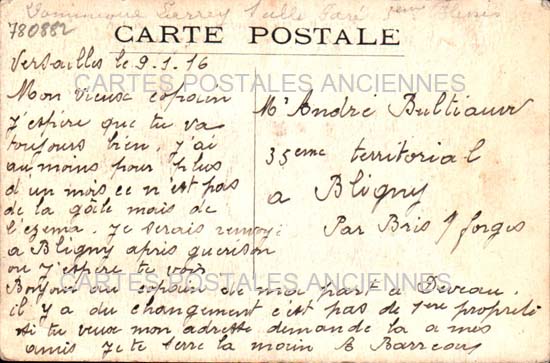 Dominique Larrey Salle Paré 5eme
780882
CARTE POSTALE
Versailles le 9.1.16
CARTES POSTALES ANCIENNES
Mon vieux copain
j'espère que tu va
toujours bien, j'ai
au moins pour plus
d'un mois ce n'est pas
de la gâle mais de
l'ezema. Je serais renvoyé
a Bligny après guerison
ou j'espère te voir
Mr André Bultiauw
35eme territorial
a Bligny
Par Bris s/ forges
CARTES POSTALES ANCIENNES
Bonjour au copain de ma part a Deveau.
il y a du changement c'est pas de 1ere propreté
si tu veux mon adresse demande la a mes
amis Je te serre la main